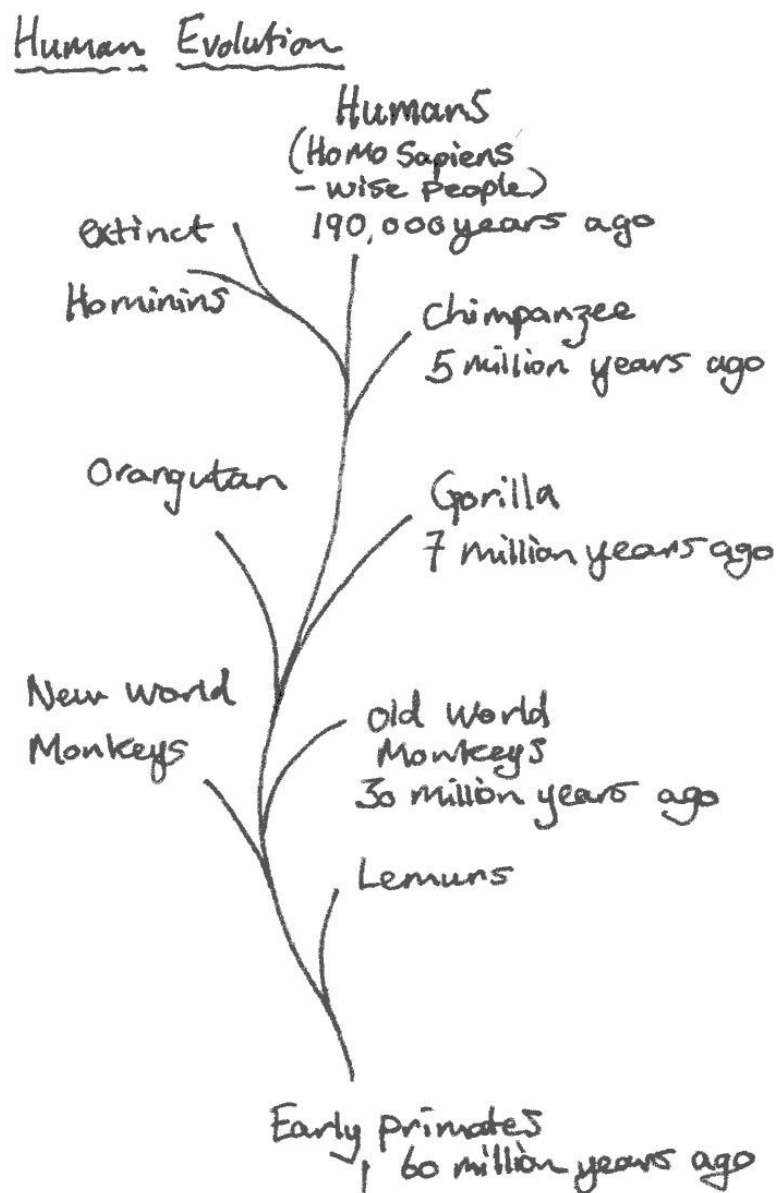 Human Evolution
Humans
(Homo Sapiens
- wise people)
190,000 years ago
extinct
Hominins
Chimpanzee
5 million years ago
Orangutan
Gorilla
7 million years ago
New World
Monkeys
Old World
Monkeys
30 million years ago
Lemurs
Early primates
60 million years ago